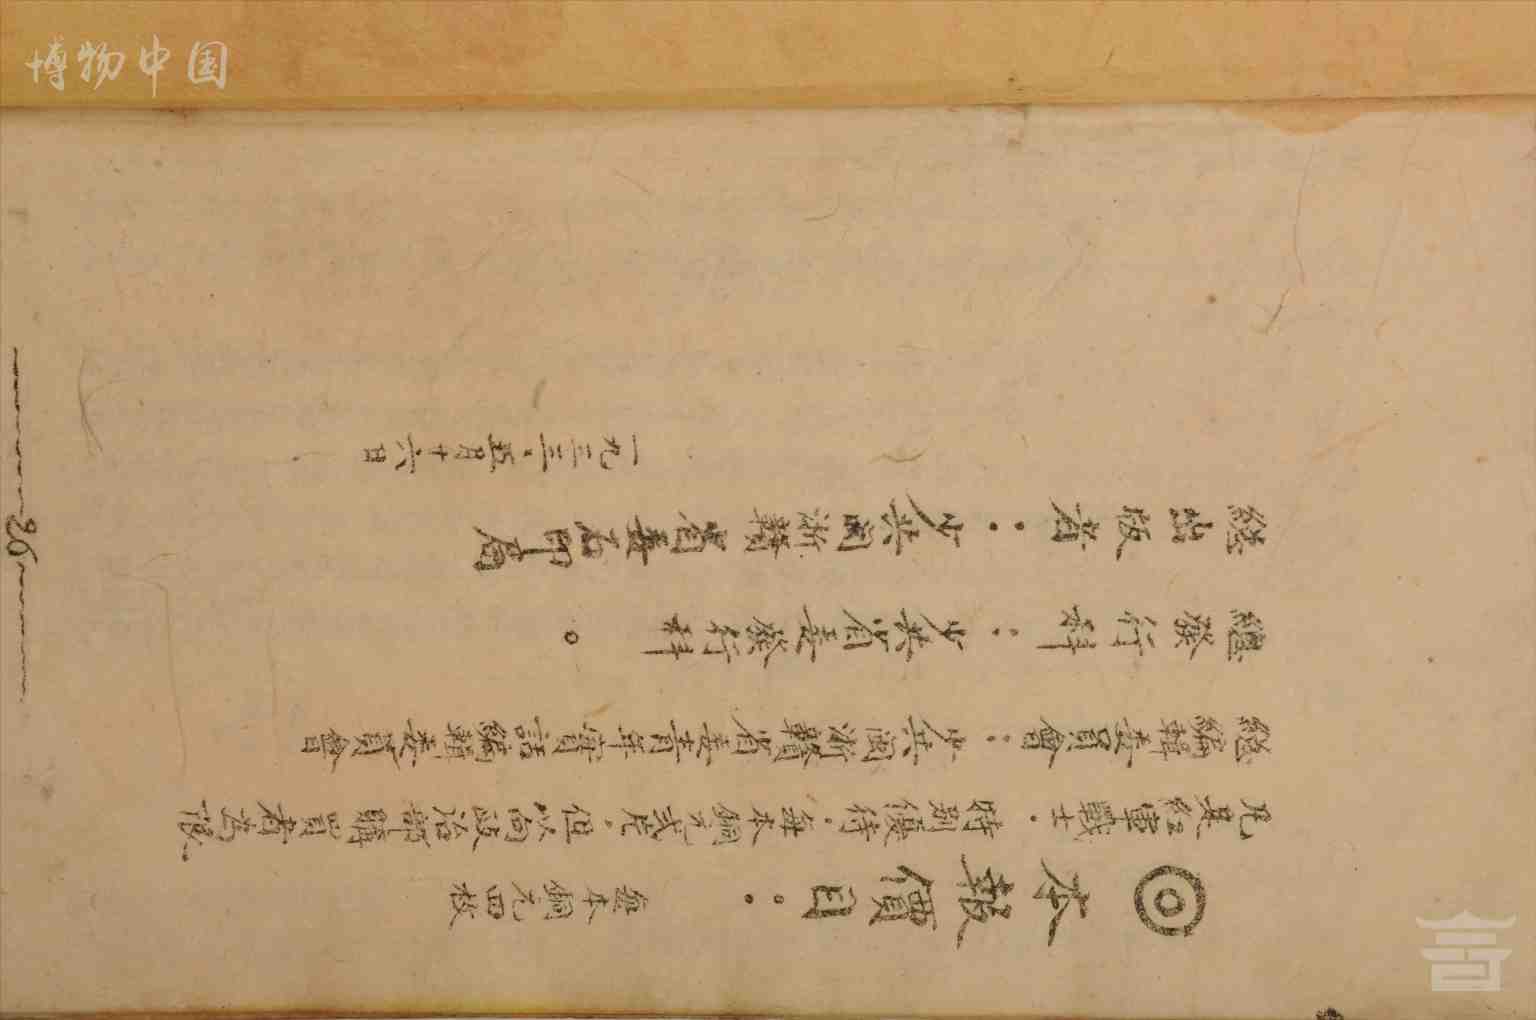 博物中国
◎本報價目：每本銅元四枚
凡是紅軍戰士．特別優待．每本銅元弍片．但以向政治部購買者為限
總編輯委員會：少共閩浙贛省委青年實話編輯委員會
總發行科：少共省委發行科。
總出版者：少共閩浙贛省委石印局
一九三三．五月十六日
26